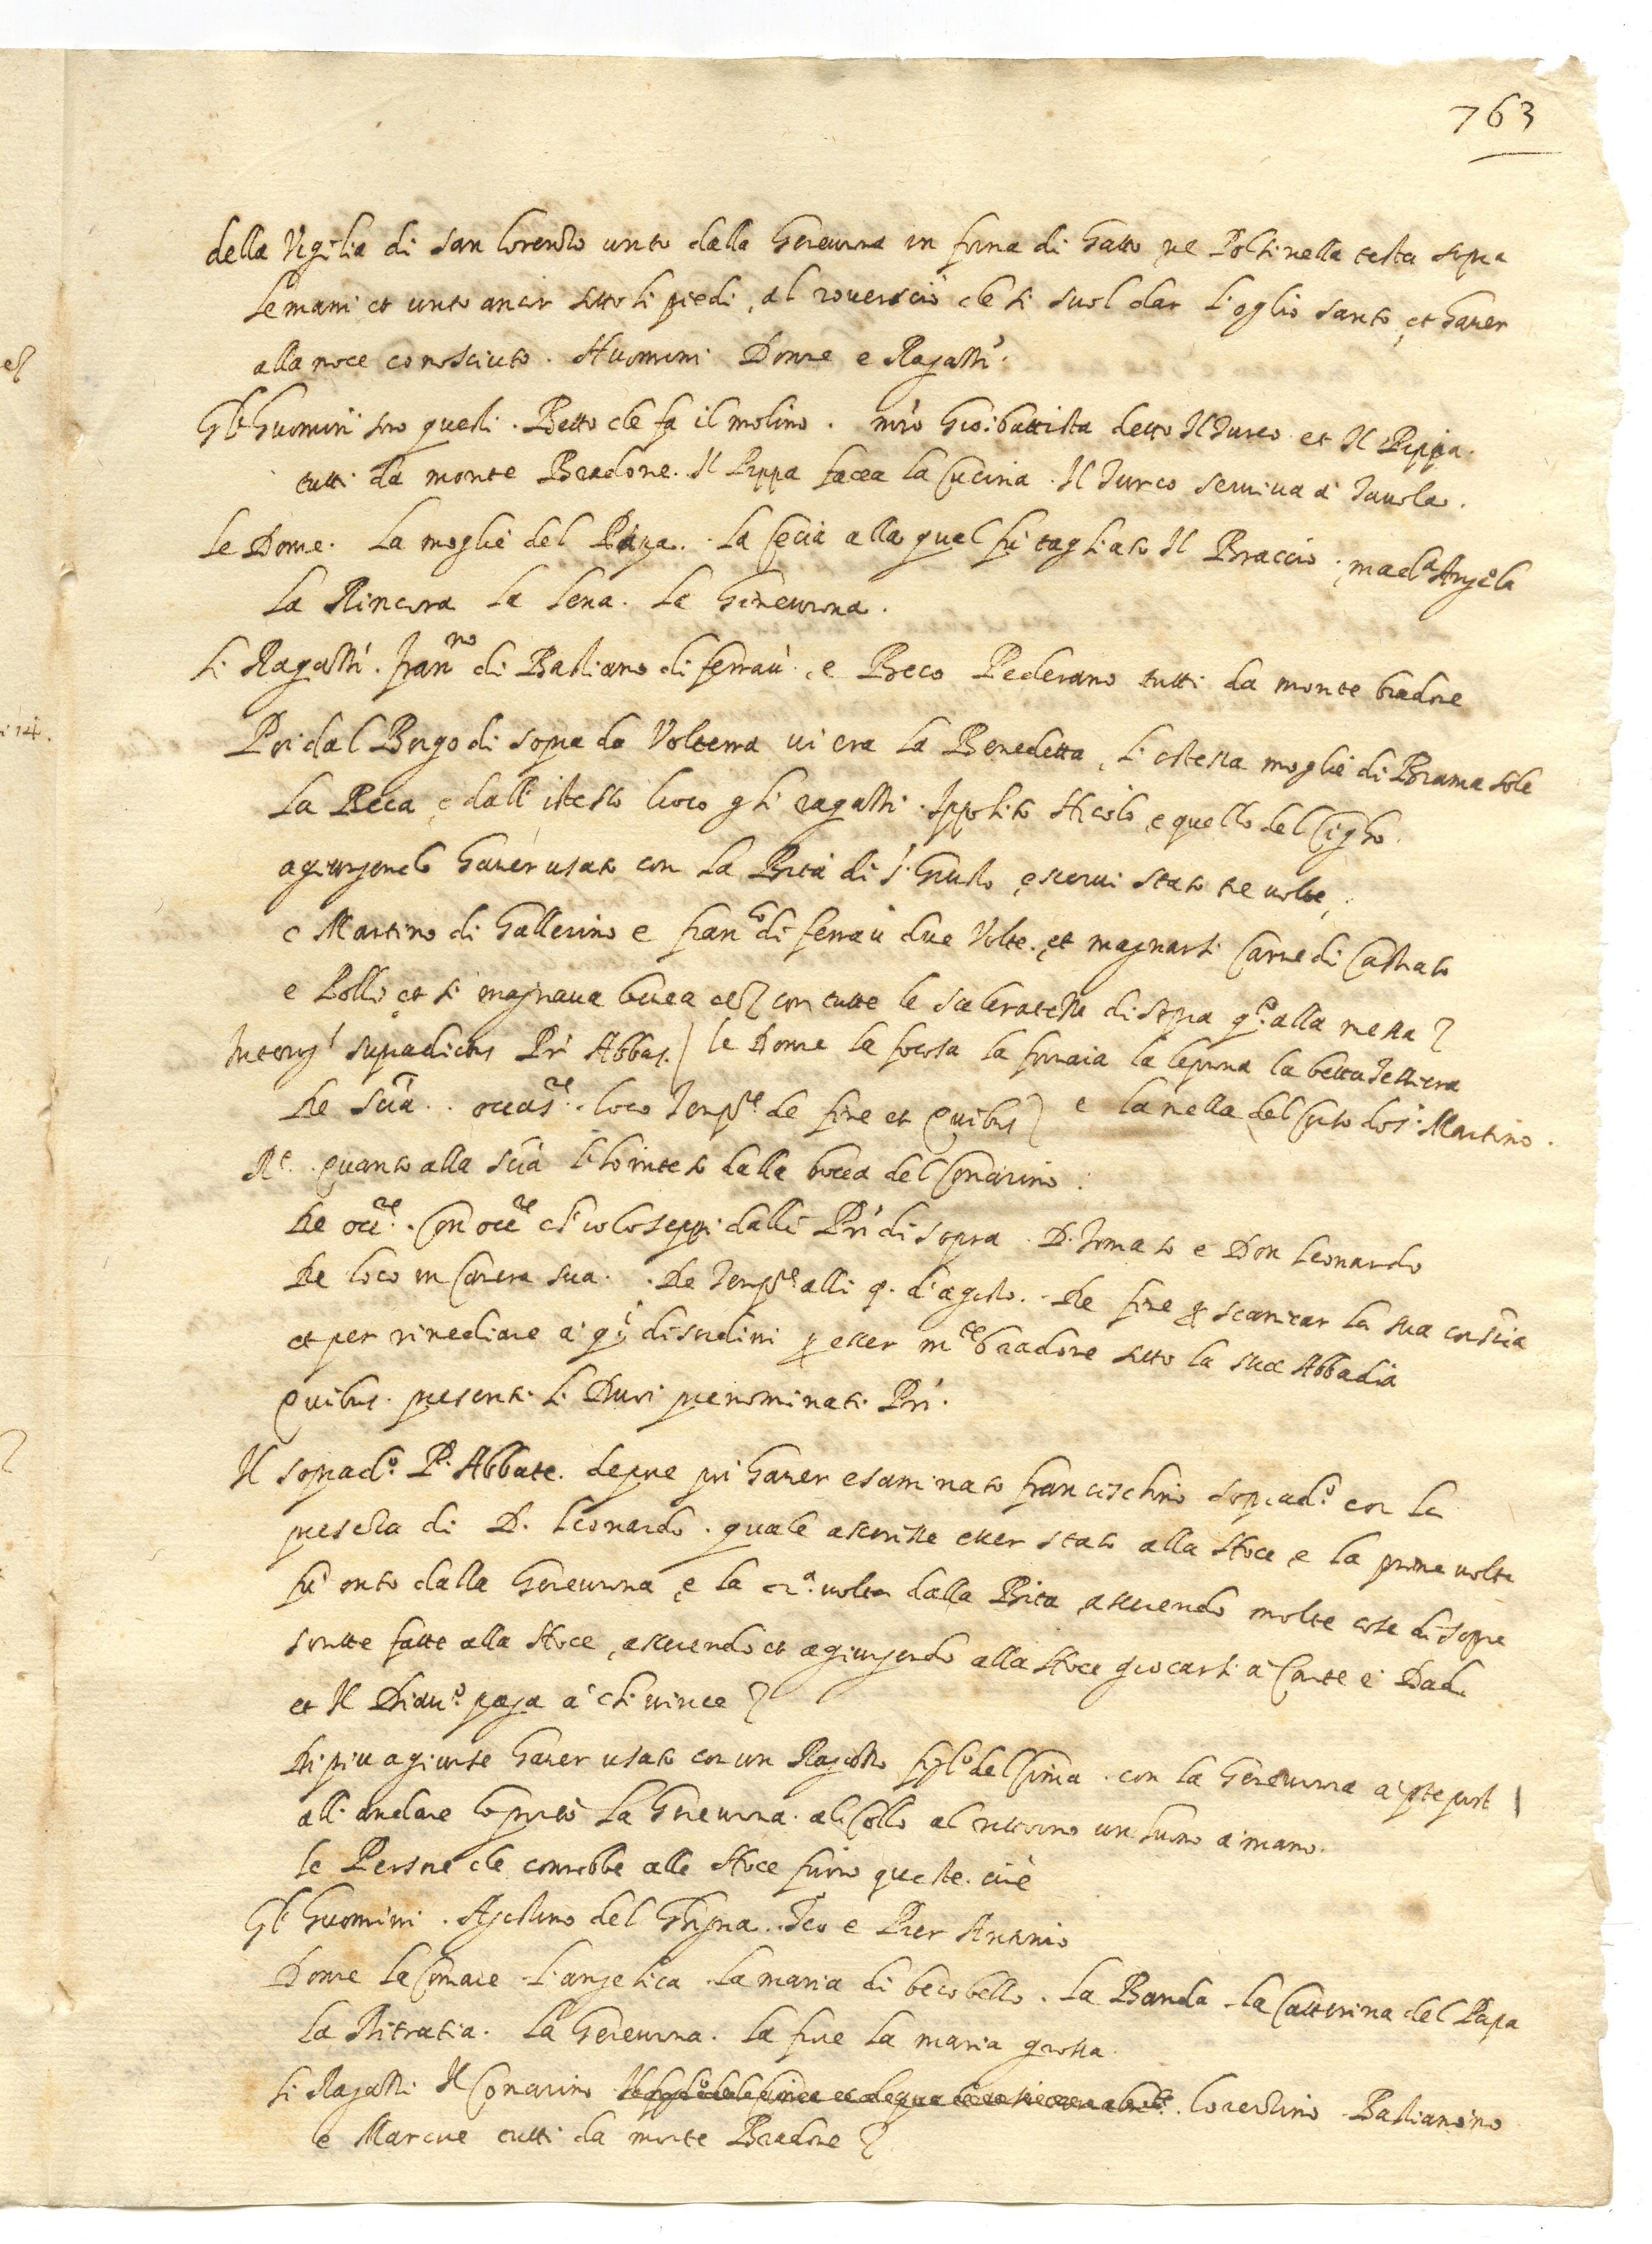 763
della Vigilia di san lorenzo unto dalla Gineurina in forma di Gatto ne Polsi nella testa sopra
le mani et unto ancor sotto li piedi, al rouerscio che si suol dar l'oglio santo, et hauer
alla noce conosciuto. Huomini Donne e Ragazzi.
Gli huomini sono questi. Betto che fa il molino. mro Gio: battista detto Il Turco et Il Pippa.
tutti da monte Bradone. Il Pippa facea la cucina. Il Turco seruiua a Tauola.
le Donne. La moglie del . La Cecia alla qual fu tagliato Il Braccio, mad.a Angela
La Rincora la lena. la Gineurina.
li Ragazzi. Fran.no di Bastiano di ferraù. e Beco Pederano tutti da monte bradone
Poi dal Borgo di sopra da Volterra ui era la Benedetta, l'ostessa moglie di Bramasole
la Beca, e dall'istesso luoco gli ragazzi. Ippolito Nicolò, e quello del Cigho.
agiungendo hauer usato con la Brita di S. Giusto, esserui stato tre uolte,
e Martino di Gallerino e fran.co di ferraù due Volte. et magnarsi Carne di Castrato
e Polli, et si magnaua con tutte le sceleratezze di sopra alla messa
Interrog.s supradictus Pr Abbas. le Donne la focosa la fornaia la leprina la betta Tessiera
De scia.. occas.ne. loco Temp.e de fine et quibus e la nella del suto da S. Martino.
R.t. quanto alla scia l'ho inteso dalla bocca del Comarino.
De occ.ne. Con occ.ne ch'io lo seppi dalli Pri di sopra. D. Tomaso e Don Leonardo
De loco in Camera sua.. De Temp.e alli 9. d'agosto.. De fine per scaricar la sua conscia
et per rimediare a disordini per esser m.te bradone sotto la sua Abbadia
Quibus. presenti li Duoi prenominati Pri.
Il soprad.o P. Abbate. depone poi hauer esaminato francischino soprad.o con la
presenza di D. Leonardo. quale asserisse esser stato alla Noce, e la prima uolta
fu onto dalla Gineurina, e la 2.a uolta dalla Brita, asserendo molte cose di sopra
scritte fatte alla Noce, asserendo et agiungendo alla Noce giocarsi a Carte e Dadi
et Il Diau.o paga a chi uince
Di piu agiunse hauer usato con un Ragazzo figl.o del Cima. con la Gineurina
all'andare lo portò la Gineurina. al Collo al ritorno a mano.
le Persone che connobbe alle Noce furno queste. cioè
Gli huomini. Agostino del Ghigna.. Teo e Pier Antonio
Donne la Comare. l'angelica. la maria di beco bello. la Banda. la Catterina del Papa
la Ritratia. La Gineurina. la la maria grossa.
li Ragazzi Il Comarino. lorenzino. Bastianino
e Marcue tutti da monte Bradone